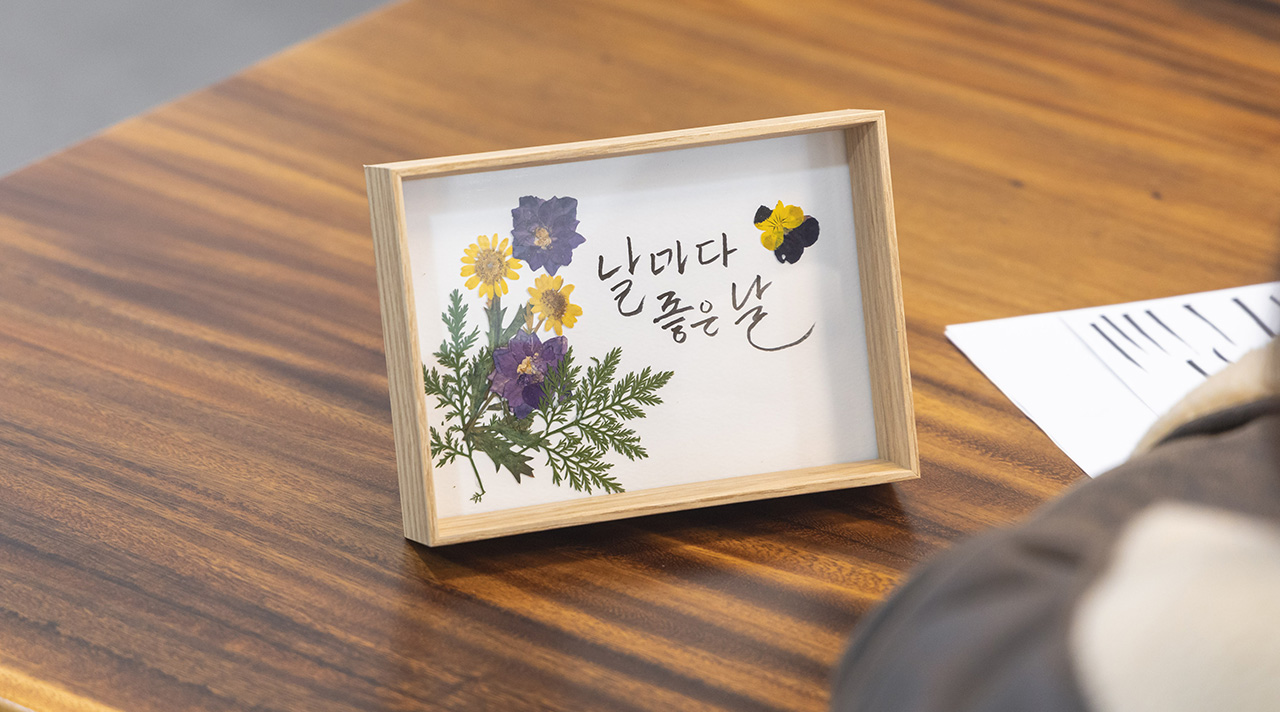 날마다
좋은 날